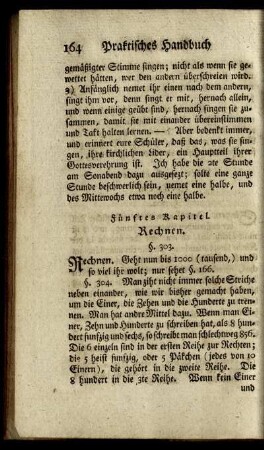 164 Praktisches Handbuch
gemäßigter Stimme singen; nicht als wenn sie ge-
wettet hätten, wer den andern überschreien wird.
3) Anfänglich nemet ihr einen nach dem andern,
singt ihm vor, denn singt er mit, hernach allein,
und wenn einige geübt sind, hernach singen sie zu-
sammen, damit sie mit einander übereinstimmen
und Takt halten lernen. — Aber bedenkt immer,
und erinnert eure Schüler, daß das, was sie sin-
gen, ihre kirchlichen Lider, ein Hauptteil ihrer
Gottesverehrung ist. Ich habe die 2te Stunde
am Sonabend dazu ausgesezt; solte eine ganze
Stunde beschwerlich sein, nemet eine halbe, und
des Mittewochs etwa noch eine halbe.
Fünftes Kapitel.
Rechnen.
§. 303.
Rechnen. Geht nun bis 1000 (tausend,) und
so viel ihr wolt; nur sehet §. 166.
§. 304. Man ziht nicht immer solche Striche
neben einander, wie wir bisher gemacht haben,
um die Einer, die Zehen und die Hunderte zu tren-
nen. Man hat andre Mittel dazu. Wenn man Ei-
ner, Zehn und Hunderte zu schreiben hat, als 8 hun-
dert funfzig und sechs, so schreibt man schlechtweg 856.
Die 6 einzeln sind in der ersten Reihe zur Rechten;
die 5 heist funfzig, oder 5 Päkchen (jedes von 10
Einern), die gehört in die zweite Reihe. Die
8 hundert in die 3te Reihe. Wenn kein Einer
und